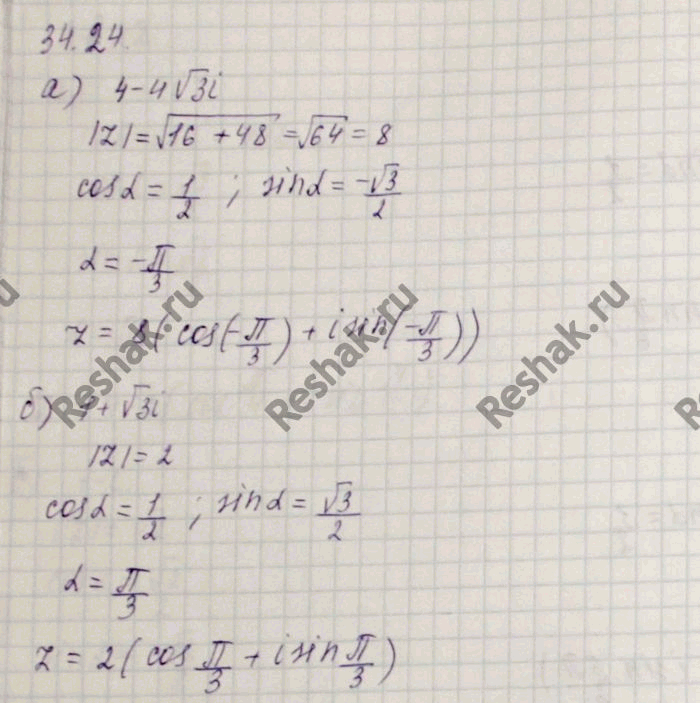 34.24.
а) 4-4√3i
|z|=√16+48=√64=8
cosα=1/2; sinα=-√3/2
α=-π/3
z = 8(cos(-π/3)+isin(-π/3))
б) 1+√3i
|z|=2
cosα=1/2; sinα=√3/2
α=π/3
z = 2(cosπ/3+isinπ/3)
Reshak.ru
Reshak.ru
Reshak.ru